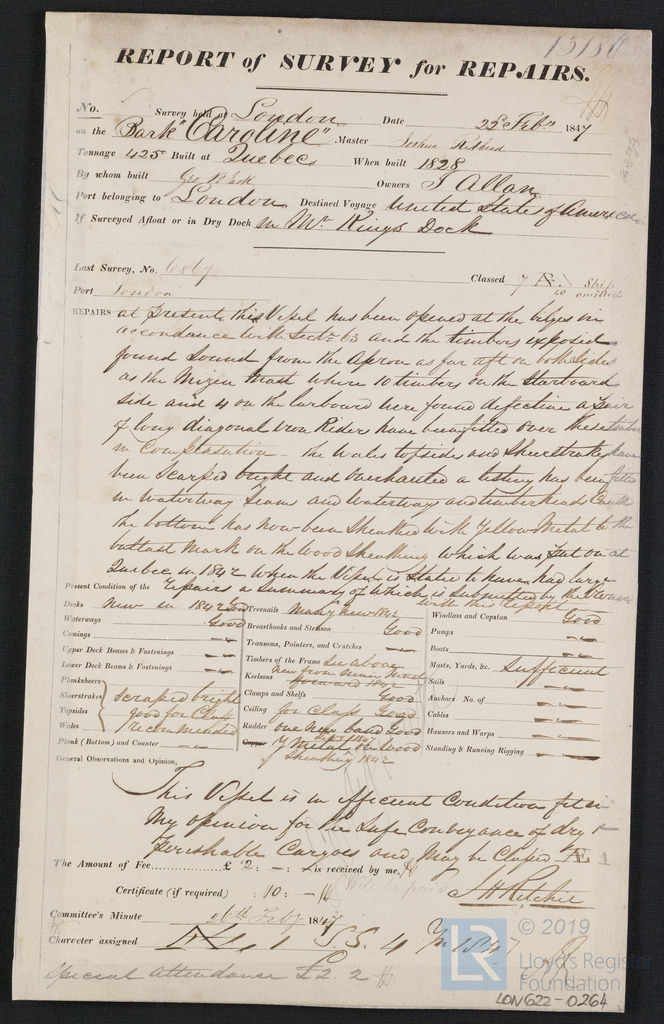 13180
REPORT of SURVEY for REPAIRS.
No. Survey held at London Date 22d Feby 1847
on the Bark "Caroline" Master Joshua
Tonnage 425 Built at Quebec When built 1828
By whom built Geo Black Owners J Allan
Port belonging to London Destined Voyage United States of America
If Surveyed Afloat or in Dry Dock in Mr Kings Dock
Last Survey, No. 6867 Classed 7
Port London
REPAIRS at present this Vessel has been opened at the bilges in
accordance with Sectn 63 and the timbers exposed
found sound from the Apron as far aft on both sides
as the Mizen Mast where 10 timbers on the Starboard
side and 4 on the larboard were found defective a pair
of long diagonal iron Riders have been fitted over these timbers
in Compensation - the Wales topsides and Sheerstrakes have
been scraped bright and overhauled a listing has been fitted
in Waterway Seams and Waterway and timberheads
the bottom has now been Sheathed with Yellow Metal to the
ballast Mark on the Wood Sheathing which was put on at
Quebec in 1842 when the Vessel is Stated to have had large
Repairs a summary of which is submitted by the Owner
with this report
Present Condition of the
Decks New in 1842 Good Treenails Many new 1842 Windlass and Capstan Good
Waterways Good Breasthooks and Stemson Good Pumps
Comings Transoms, Pointers, and Crutches Boats
Upper Deck Beams & Fastenings Timbers of the Frame See above Masts, Yards, &c. Sufficient
Lower Deck Beams & Fastenings Keelsons New from Main Mast forward 1842 Sails
Planksheers Clamps and Shelfs Good Anchors No. of
Sheerstrakes scraped bright Ceiling for Class Good Cables
Topsides good for Class Rudder one New band Good Hawsers and Warps
Wales recommended Copper Y Metal 1847 on Wood Standing & Running Rigging
Plank (Bottom) and Counter of Sheathing 1842
General Observations and Opinion,
This Vessel is in efficient Condition fit in
My opinion for the Safe Conveyance of dry &
Perishable Cargoes and May be Classed Æ 1
The Amount of Fee............£ 2 : - : - is received by me,
Will be paid
Certificate (if required) : 10 : - J H Ritchie
Committee's Minute 26th Feby 1847
Character assigned Æ 1 S.S. 4 Yr 1847
Special Attendance £2.2
LR
© 2019
Lloyd's Register
Foundation
LON622-0264